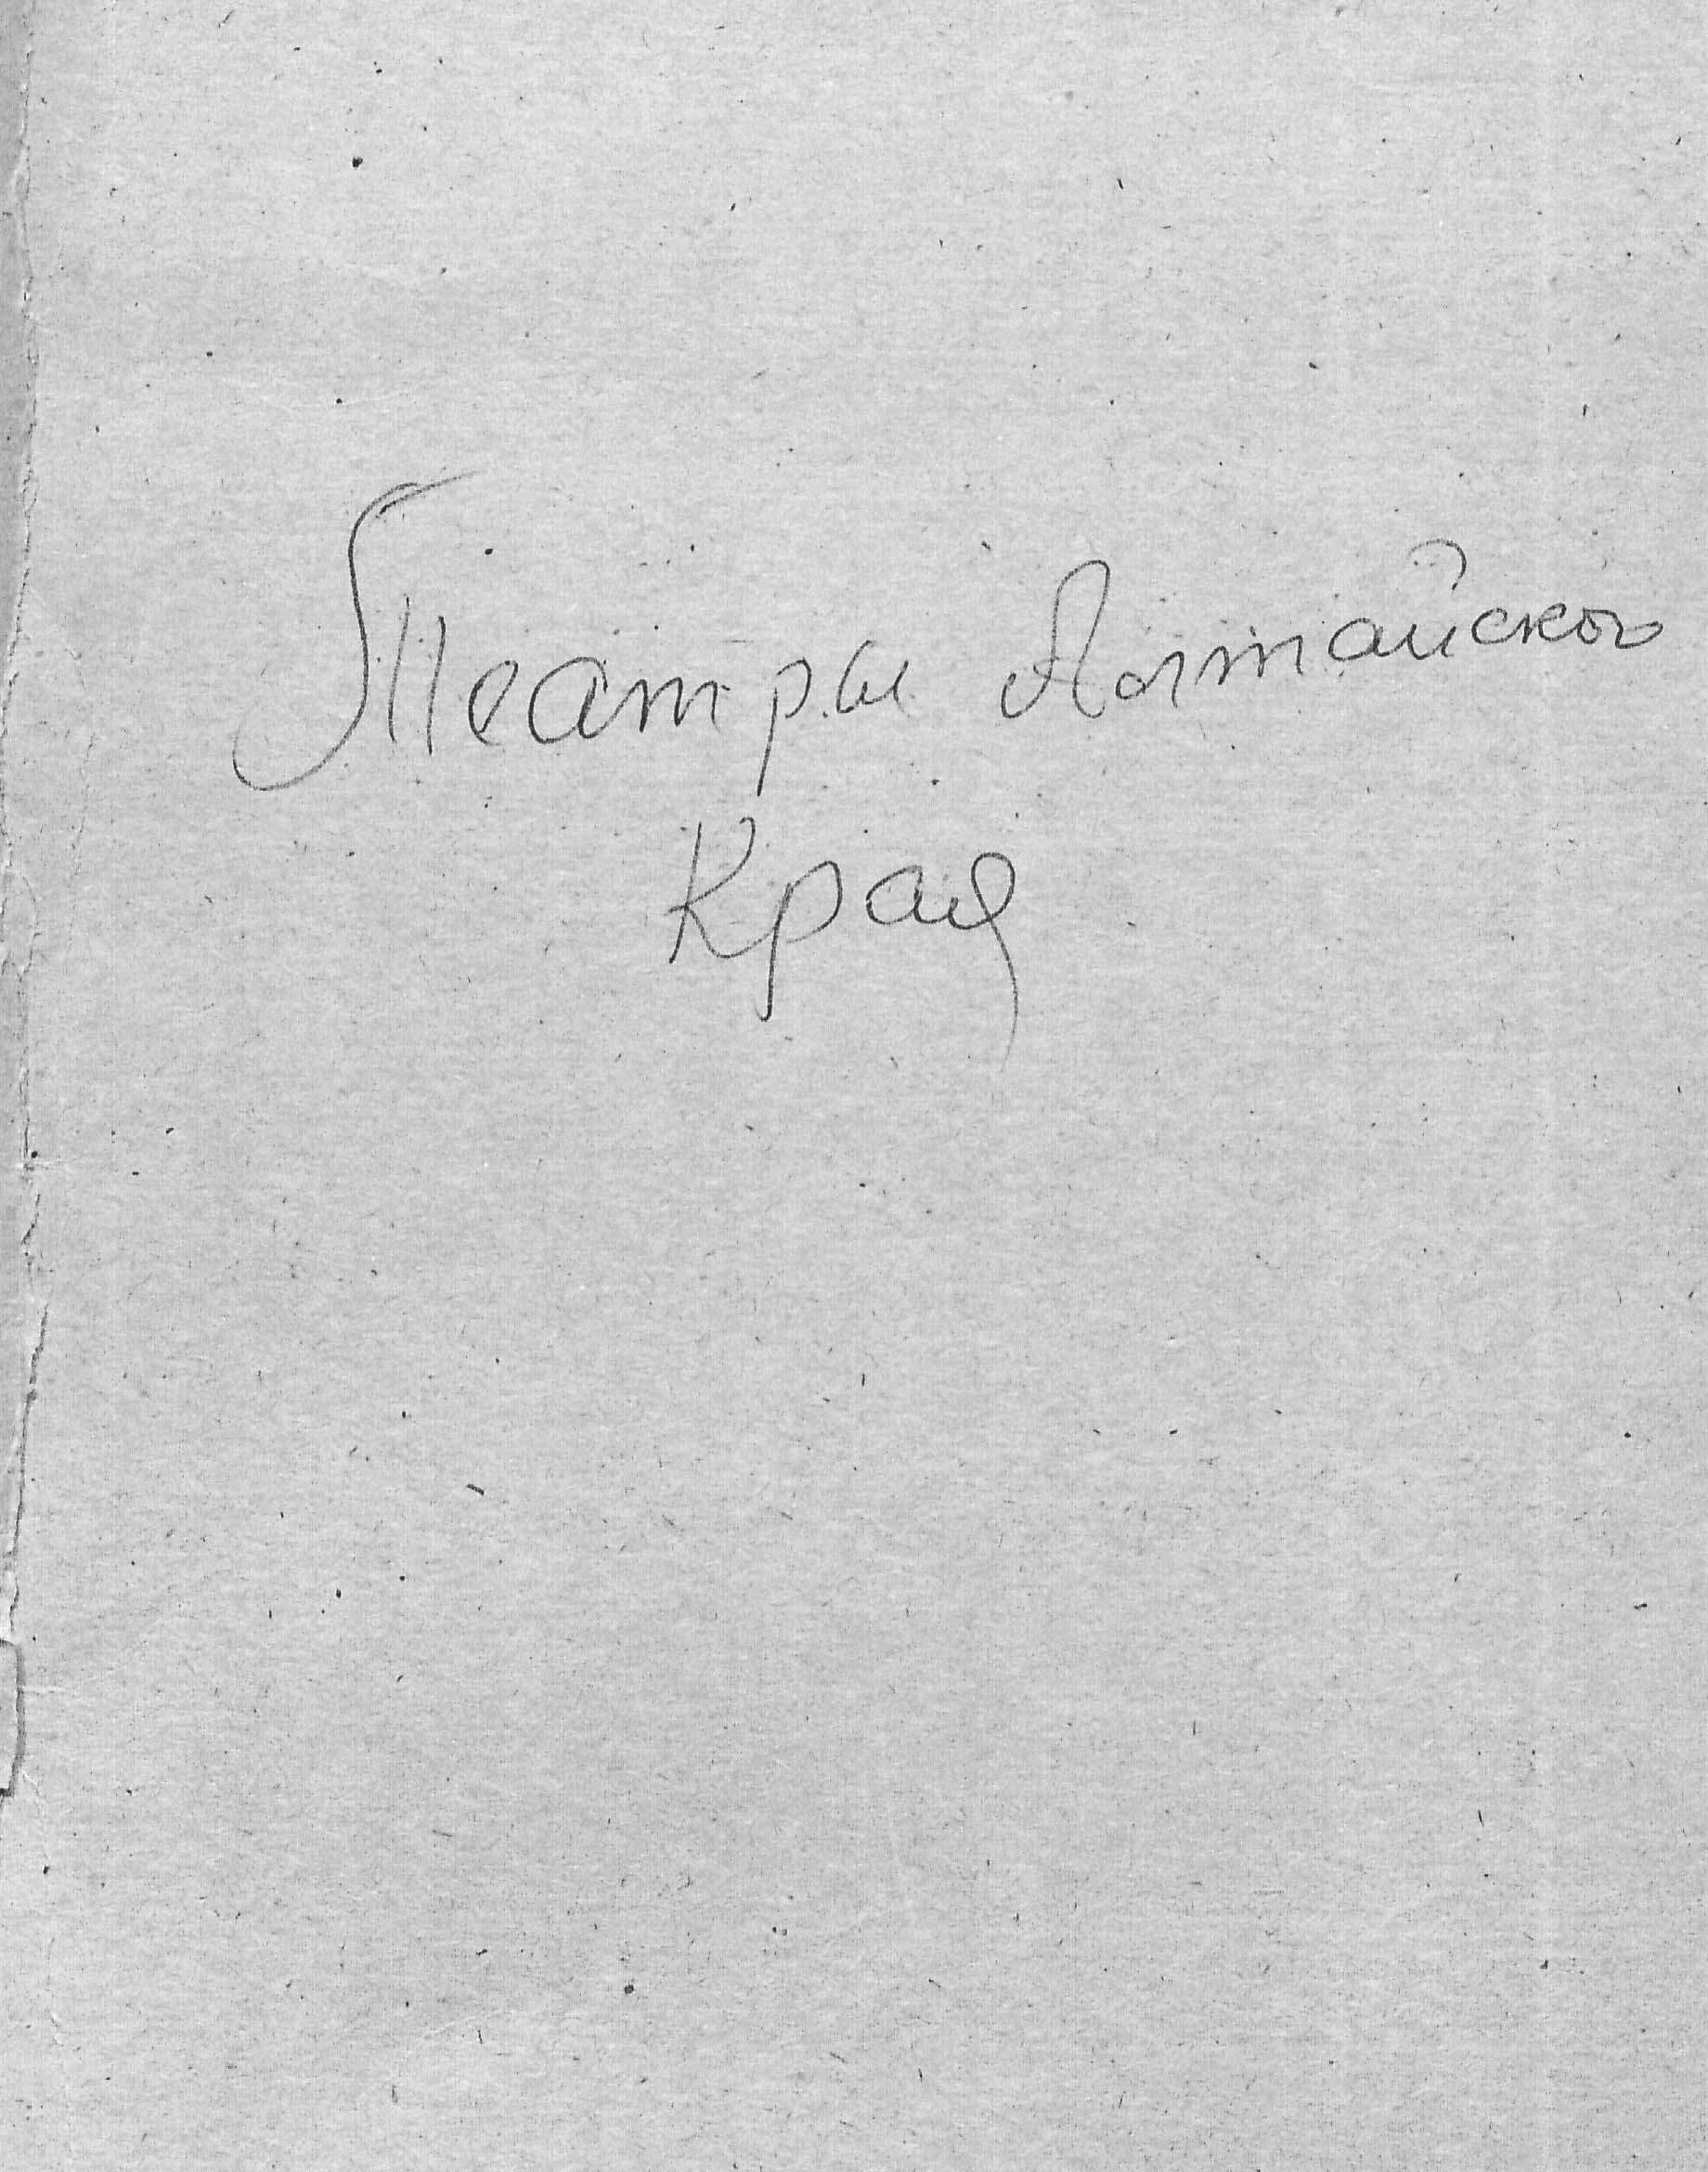 Театры Алтайского
Края